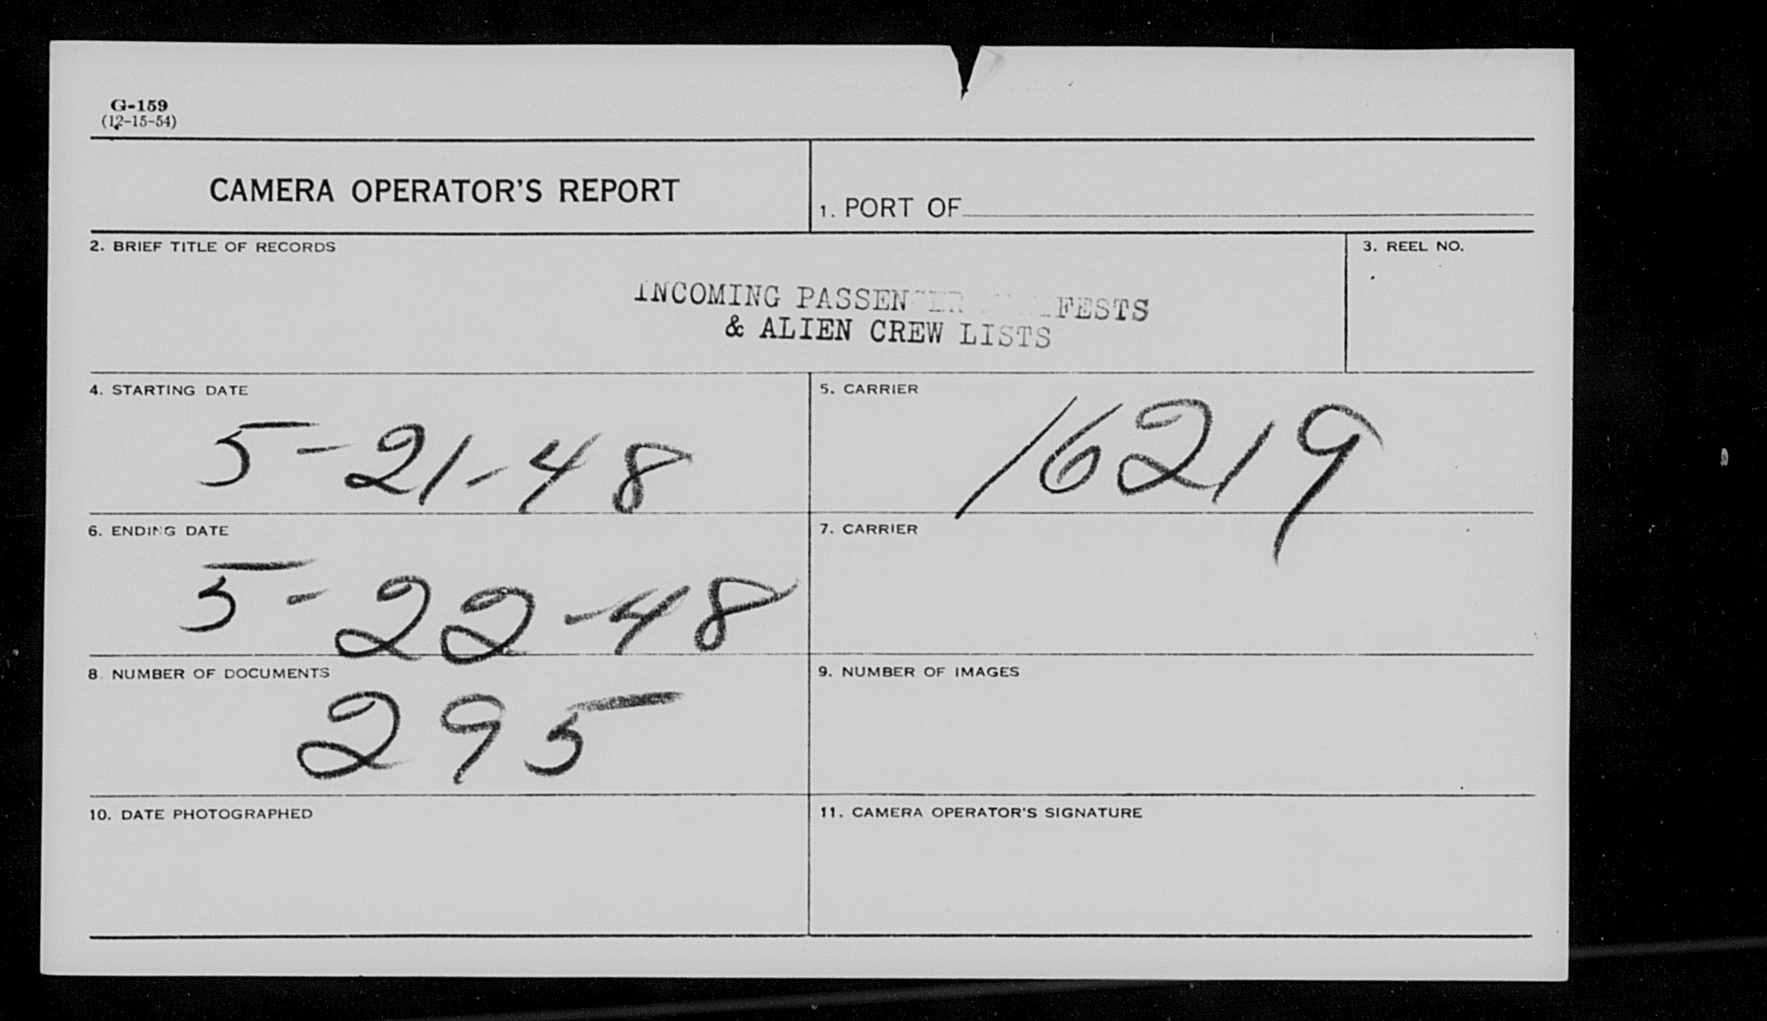 G-159
(12-15-54)
CAMERA OPERATOR'S REPORT
1. PORT OF
2. BRIEF TITLE OF RECORDS
3. REEL NO.
INCOMING PASSENGER MANIFESTS
& ALIEN CREW LISTS
4. STARTING DATE
5-21-48
5. CARRIER
16219
6. ENDING DATE
5-22-48
7. CARRIER
8. NUMBER OF DOCUMENTS
295
9. NUMBER OF IMAGES
10. DATE PHOTOGRAPHED
11. CAMERA OPERATOR'S SIGNATURE